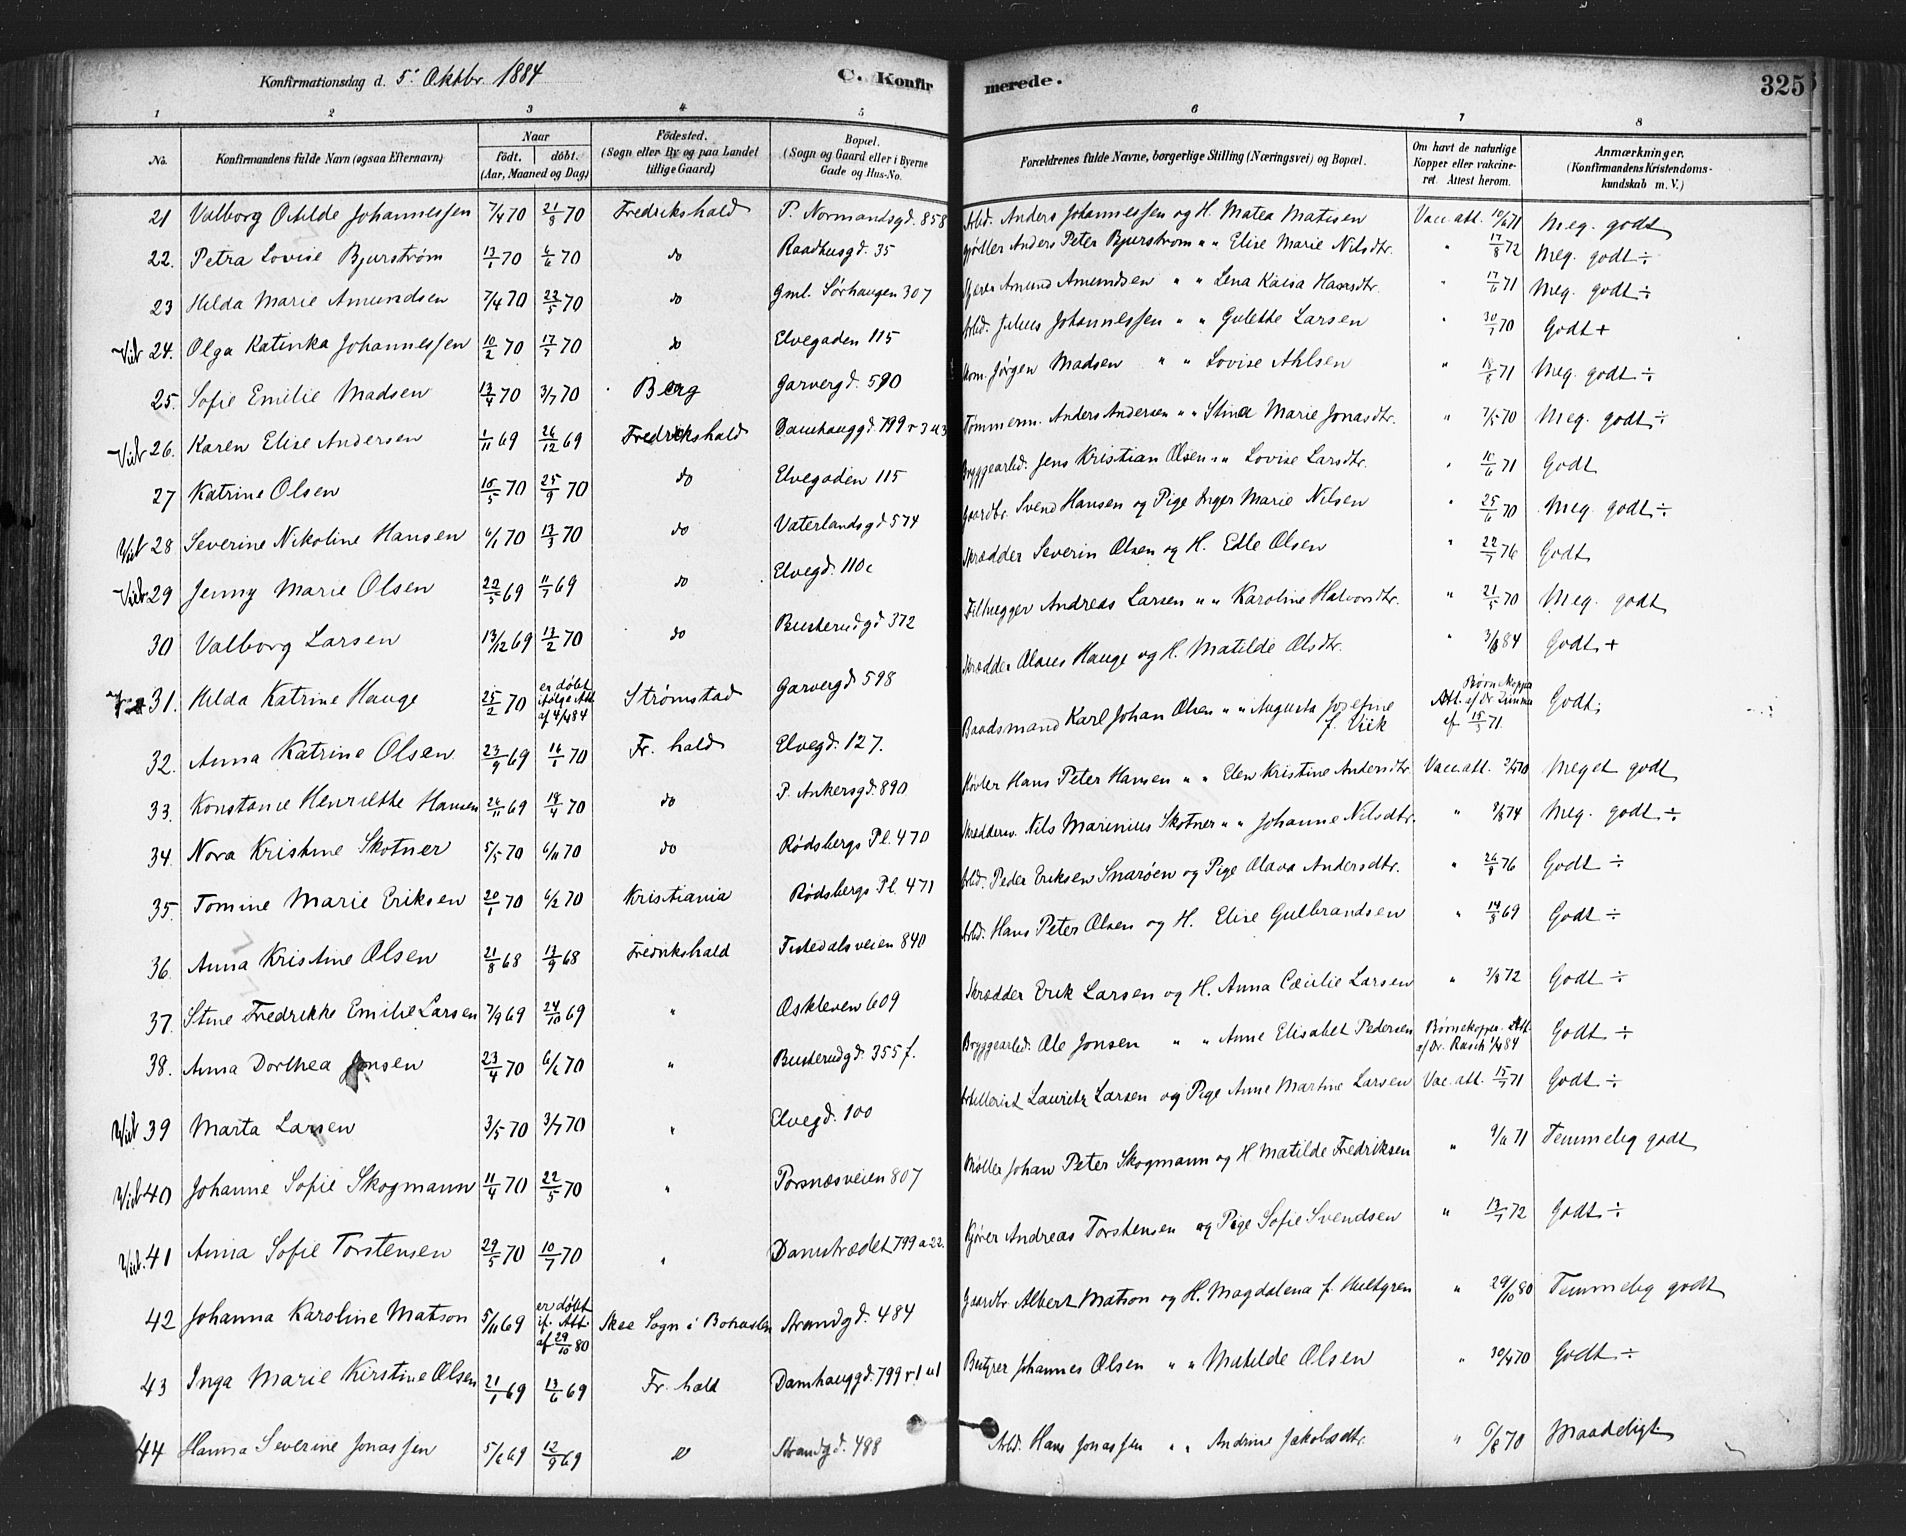 Konfirmationsdag d. 5' Oktbr. 1884 C. Konfirmerede. 325
1 2 3 4 5 6 7 8
No. Konfirmandens fulde Navn (ogsaa Efternavn) Naar født. døbt. (Aar, Maaned og Dag) Fødested. (Sogn eller By og paa Landet tillige Gaard) Bopæl. (Sogn og Gaard eller i Byerne Gade og Hus-No. Forældrenes fulde Navne, borgerlige Stilling (Næringsvei) og Bopæl. Om havt de naturlige Kopper eller vakcineret. Attest herom. Anmærkninger. (Konfirmandens Kristendomskundskab m. V.)
21 Valborg Otilde Johannessen 7/4 70 21/8 70 Fredrikshald P. Normandsgd. 858 Arbd. Anders Johannessen og H. Matea Matisen Vac. att. 10/6 71 Meg. godt
22. Petra Lovise Bjurstrøm 13/1 70 6/6 70 do Raadhusgd. 35 Anders Peter Bjurstrøm " " Elise Marie Nilsdtr. " 17/8 72 Meg. godt ÷
23 Hilda Marie Amundsen 7/4 70 22/5 70 do Gml. Sørhaugen 307 Amund Amundsen " " Lena Kaisa Hansdtr. " 17/6 71 Meg. godt ÷
24. Olga Katinka Johannessen 10/2 70 17/7 70 do Elvegaden 115 Arbd. Julius Johannessen " " Gulette Larsen " 30/7 70 Godt +
25. Sofie Emilie Madsen 13/4 70 3/7 70 Berg Garvergd. 590 Jørgen Madsen " " Lovise Ahlsen " 18/8 71 Meg. godt ÷
26. Karen Elise Andersen 1/11 69 26/12 69 Fredrikshald Damhauggd. 799 Tømmerm. Anders Andersen " " Stina Marie Jonasdtr. " 7/5 70 Meg. godt ÷
27 Katrine Olsen 15/5 70 25/9 70 do Elvegaden 115 Bryggearbd. Jens Kristian Olsen " " Lovise Larsdtr. " 10/6 71 Godt
28 Severine Nikoline Hansen 6/1 70 13/3 70 do Vaterlandsgd 574 Gaardbr. Svend Hansen og Pige Inger Marie Nilsen " 25/6 70 Meg. godt ÷
29 Jenny Marie Olsen 22/5 69 11/7 69 do Elvegd. 110c Skrædder Severin Olsen og H. Edle Olsen " 22/7 76 Godt
30 Valborg Larsen 13/12 69 13/2 70 do Busterudgd 372 Andreas Larsen " " Karoline Halvorsdtr. " 21/5 70 Meg. godt
31. Hilda Katrine Hauge 25/2 70 er døbt ifølge Att. af 4/4 84 Strømstad Garvergd 598 Skrædder Olaus Hauge og H. Matilde Olsdtr. " 3/8 84 Godt +
32. Anna Katrine Olsen 23/9 69 16/1 70 Fr. hald Elvegd. 127. Baadsmand Karl Johan Olsen " " Augusta Josefine f. Viik Børnekopper Att. af Dr. af 15/5 71. Godt
33. Konstance Henriette Hansen 26/11 69 18/4 70 do P. Ankersgd. 890 Høvler Hans Peter Hansen " " Elen Kristine Andersdtr. Vacc. att. Meget godt
34. Nora Kristine Skotner 5/5 70 6/11 70 do Rødsbergs Pl. 470 Nils Marinius Skotner " " Johanne Nilsdtr. " 9/8 74 Meg. godt ÷
35. Tomine Marie Eriksen 20/1 70 6/2 70 Kristiania Rødsbergs Pl. 471 Arbd. Peder Eriksen Snarøen og Pige Olava Andersdtr. " 26/8 76 Godt ÷
36. Anna Kristine Olsen 21/8 68 13/9 68 Fredrikshald Tistedalsveien 840 Arbd. Hans Peter Olsen og H. Elise Gulbrandsen " 14/8 69 Godt ÷
37. Stine Fredrikke Emilie Larsen 7/9 69 24/10 69 " Oskleven 609 Skrædder Erik Larsen og H. Anna Cæcilie Larsen " 3/8 72 Godt ÷
38. Anna Dorthea Jonsen 23/4 70 6/6 70 " Busterudgd. 355 f. Bryggearbd. Ole Jonsen " " Anne Elisabet Pedersen Børnekopper. Att. af Dr. Rasch 1/4 84 Godt ÷
39 Marta Larsen 3/5 70 3/7 70 " Elvegd. 100 Artillerist Lauritz Larsen og Pige Anne Martine Larsen Vac. att. 15/7 71 Godt ÷
40 Johanne Sofie Skogmann 11/4 70 22/5 70 " Torsnæsveien 807 Møller Johan Peter Skogmann og H Matilde Fredriksen " 9/11 71 Temmelig godt
41 Anna Sofie Torstensen 29/5 70 10/7 70 " Damstrædet 799 a 22. Kjører Andreas Torstensen og Pige Sofie Svendsen " 13/7 72 Godt ÷
42 Johanna Karoline Matson 5/11 69 er døbt if. Att. af 29/10 80 Skee Sogn i Bohuslen Strandgd. 484 Gaardbr. Albert Matson og H. Magdalena f. Hultgren " 29/10 80 Temmelig godt
43 Inga Marie Kirstine Olsen 21/1 69 13/6 69 Fr. hald Damhauggd. 799 Johannes Olsen " " Matilde Olsen " 30/4 70 Godt ÷
44 Hanna Severine Jonassen 5/6 69 12/9 69 do Strandgd. 488 Arbd. Hans Jonassen " " Andrine Jakobsdtr. " 6/8 70 Maadeligt